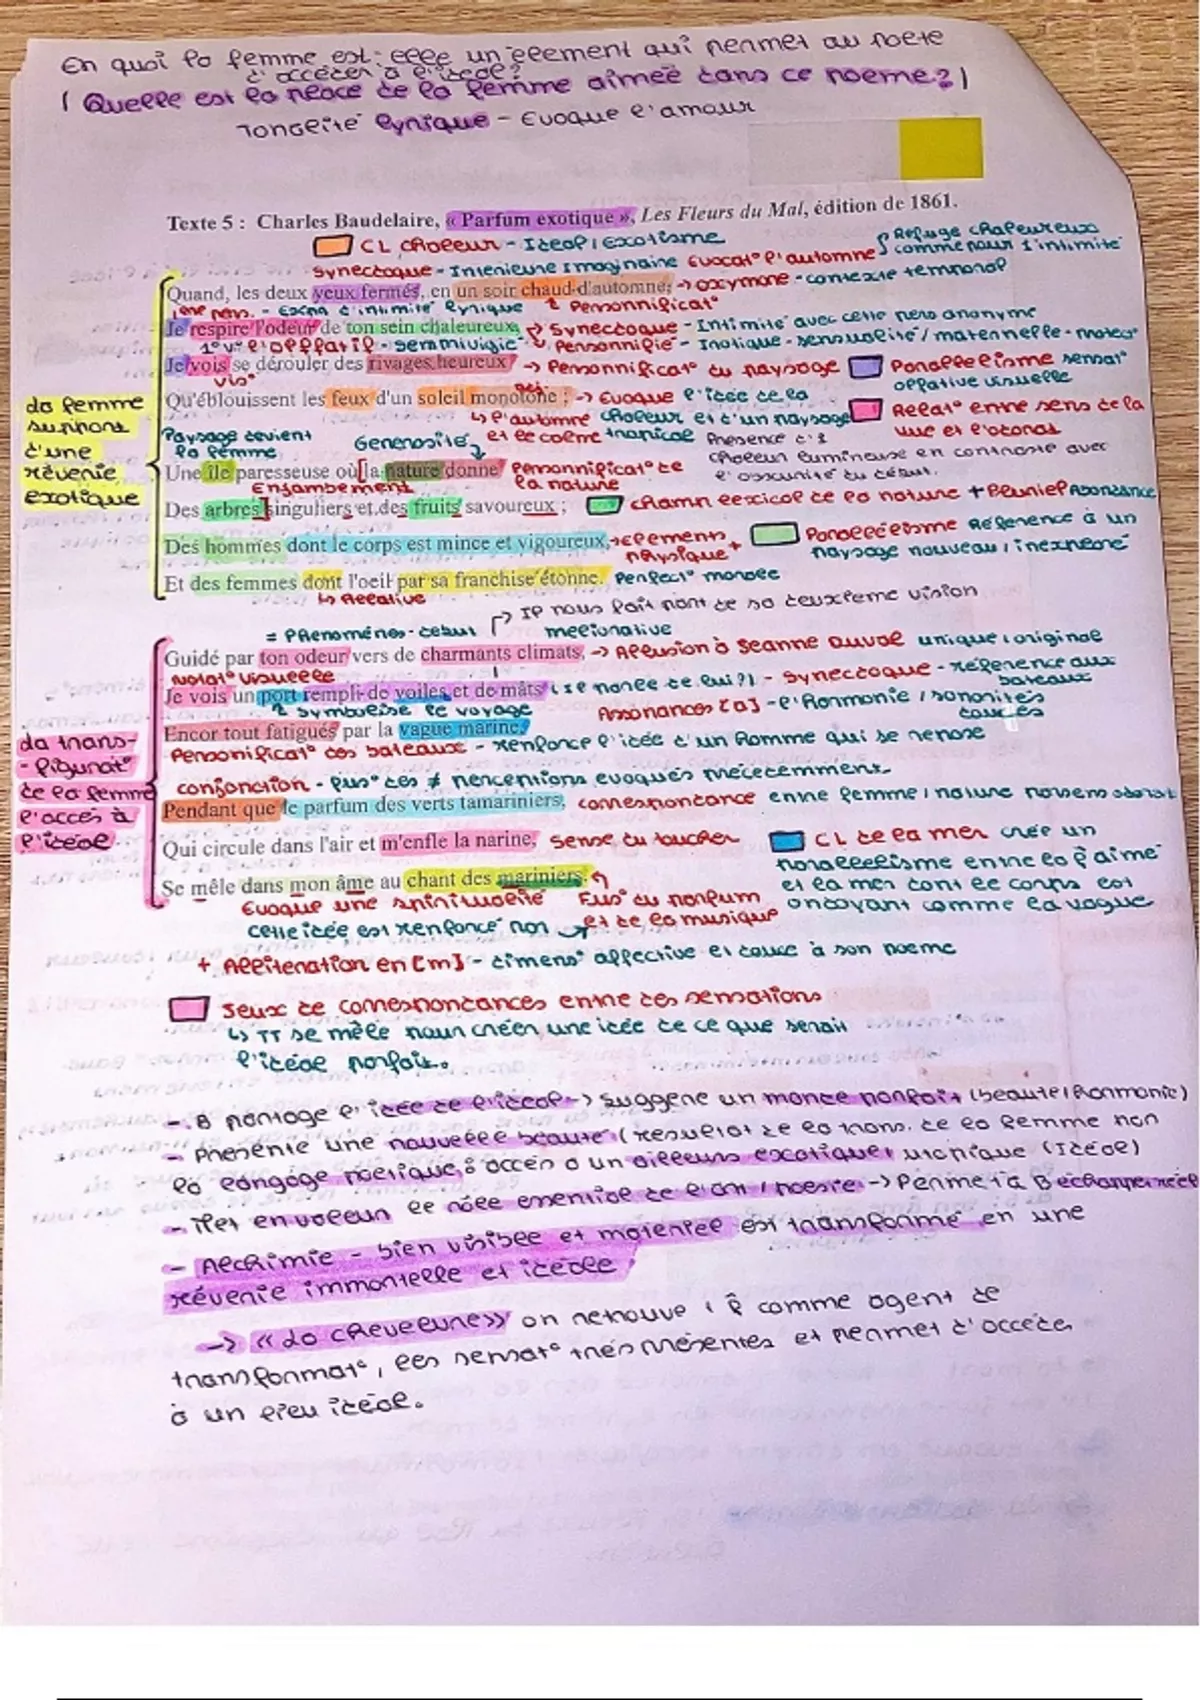 En quoi la femme est-elle un element qui permet au poete
d'accéder à l'idéal?
( Quelle est la place de la femme aimée dans ce poeme? )
Tonalité lyrique - Evoque l'amour
Texte 5 : Charles Baudelaire, « Parfum exotique », Les Fleurs du Mal, édition de 1861.
CL chaleur - Ideal / Exotisme
Refuge chaleureux
comme pour l'intimité
Synecdoque - Interieure Imaginaire Evocat° l'automne
Quand, les deux yeux fermés, en un soir chaud d'automne, -> oxymore - contexte temporal
1ère pers. - d'intimité lyrique Personnificat°
Je respire l'odeur de ton sein chaleureux, -> Synecdoque - Intimité avec cette pers anonyme
1° v: l'olfatif - Personnifie - sensualité / maternelle
Je vois se dérouler des rivages heureux -> Personnificat° du paysage
Parallelisme sensat°
olfative visuelle
vis°
Qu'éblouissent les feux d'un soleil monotone ; -> Evoque l'idée de la
adj.
chaleur et d'un paysage
tropical
l'automne
et le calme
Relat° entre sens de la
vue et l'odorat
La femme
support
d'une
rêverie
exotique
Paysage devient
la femme
Generosité
Presence d'1
chaleur lumineuse en contraste avec
l'obscurité du début.
Une île paresseuse où la nature donne Personnificat° de
la nature
Enjambement
Des arbres singuliers et des fruits savoureux ; champ lexical de la nature + Pluriel Abondance
Des hommes dont le corps est mince et vigoureux, -> Elements
physique +
Parallelisme Réference à un
paysage nouveau, inexploré
Et des femmes dont l'oeil par sa franchise étonne. Perfect° morale
-> Relative
= Phenoménes - début
-> IP nous fait part de sa deuxieme vision
meliorative
Guidé par ton odeur vers de charmants climats, -> Allusion à Jeanne Duval unique, original
Notat° visuelle
Je vois un port rempli de voiles et de mâts - Synecdoque - réference aux
bateaux
symbolise le voyage
Assonances [a] - l'harmonie / sonorités
douces
Encor tout fatigués par la vague marine,
Personificat° des bateaux - renforce l'idée d'un homme qui se repose
La trans-
-figurat°
de la femme
l'accés à
l'ideal
conjonction - fus° des ≠ perceptions evoqués précedemment
Pendant que le parfum des verts tamariniers, correspondance entre femme / nature
Qui circule dans l'air et m'enfle la narine, Sense du toucher
CL de la mer crée un
parallelisme entre la f aimé
et la mer dont le corps est
ondoyant comme la vague
Se mêle dans mon âme au chant des mariniers.
Evoque une spiritualité
Fus° du parfum
et de la musique
cette idée est renforcé par
+ Alliteration en [m] - dimens° affective et douce à son poeme
Jeux de correspondances entre des sensations
-> TT se mêle pour créer une idée de ce que serait
l'ideal parfait.
- B partage l'idée de l'ideal -> suggere un monde parfait (beauté / harmonie)
- Présente une nouvelle beauté (résultat de la trans. de la femme par
la langage poetique) accès à un ailleurs exotique, utopique (Idéal)
- Met en valeur le rôle essentiel de l'art / poesie -> Permet à B échapper réel
- Alchimie - bien visible et materiel est transformé en une
rêverie immortelle et idéale
-> « La chevelure » on retrouve : f comme agent de
transformat°, les sensat° très présentes et permet d'accéder
à un lieu idéal.